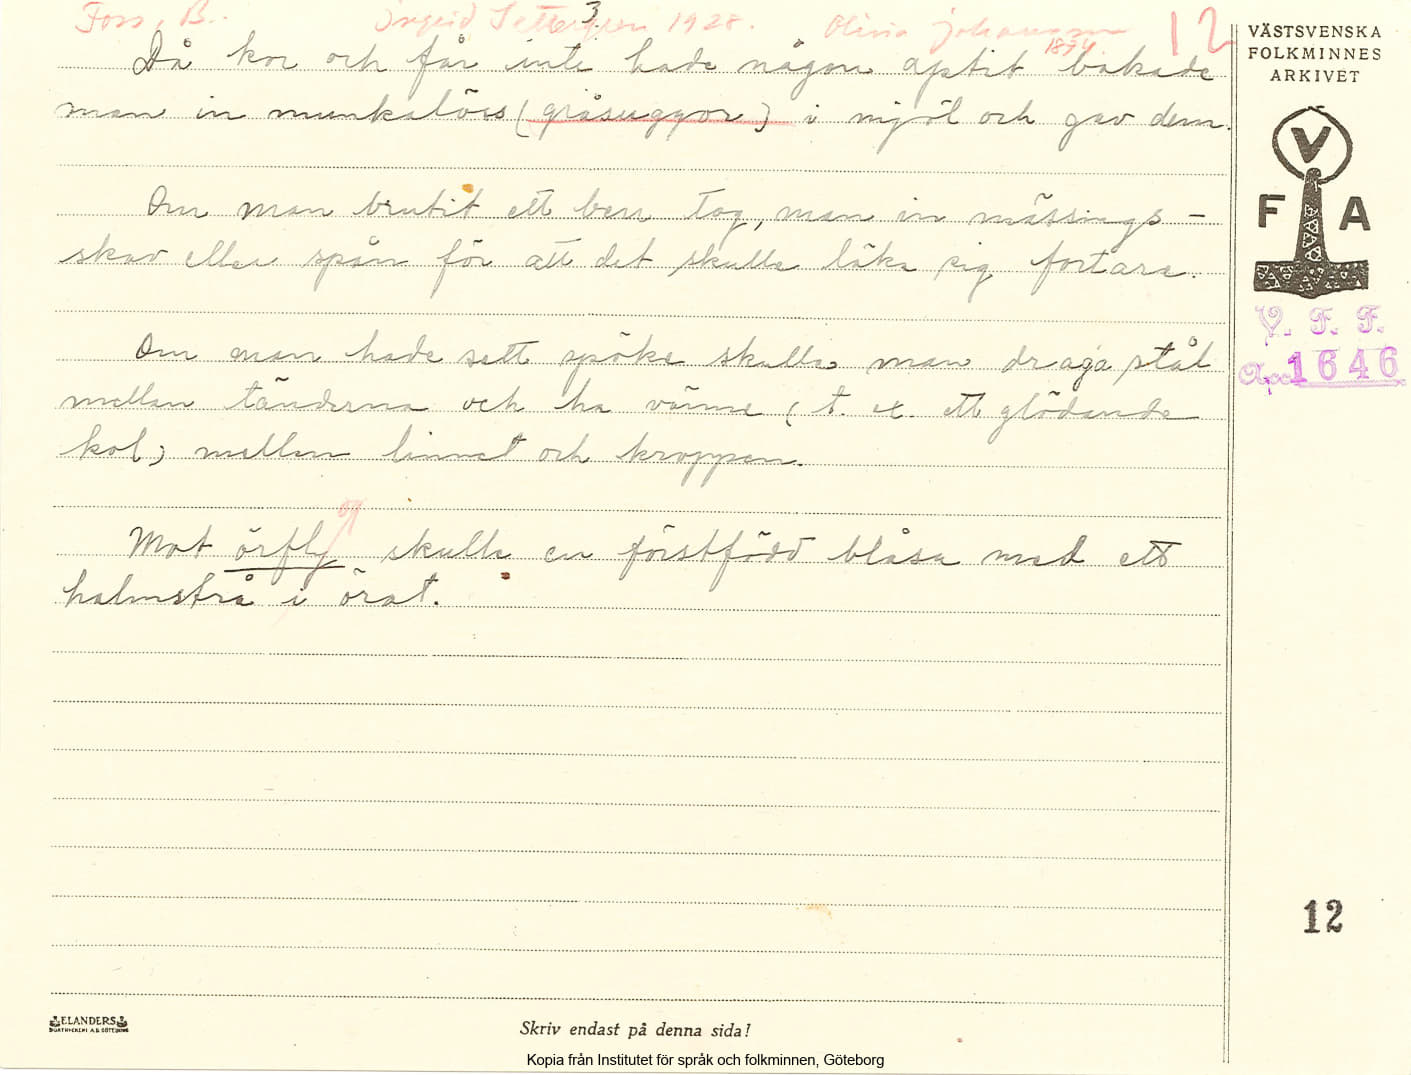 Foss, B. Ingrid Settergren 1928. Olivia Johansson 12
3. 1894.
Då kor och får inte hade någon aptit bakade
man in munkalöss (gråsuggor) i mjöl och gav dem.
Om man brutit ett ben tog, man in mässings-
skav eller spån för att det skulle läka sig fortare.
Om man hade sett spöke skulle man draga stål
mellan tänderna och ha värme (t. ex. ett glödande
kol) mellan linnet och kroppen.
Mot örfly skulle en förstfödd blåsa med ett
halmstrå i örat.
VÄSTSVENSKA
FOLKMINNES
ARKIVET
V
F A
V. F. F.
Acc 1646
12
ELANDERS
BOKTRYCKERI A.B. GÖTEBORG
Skriv endast på denna sida!
Kopia från Institutet för språk och folkminnen, Göteborg